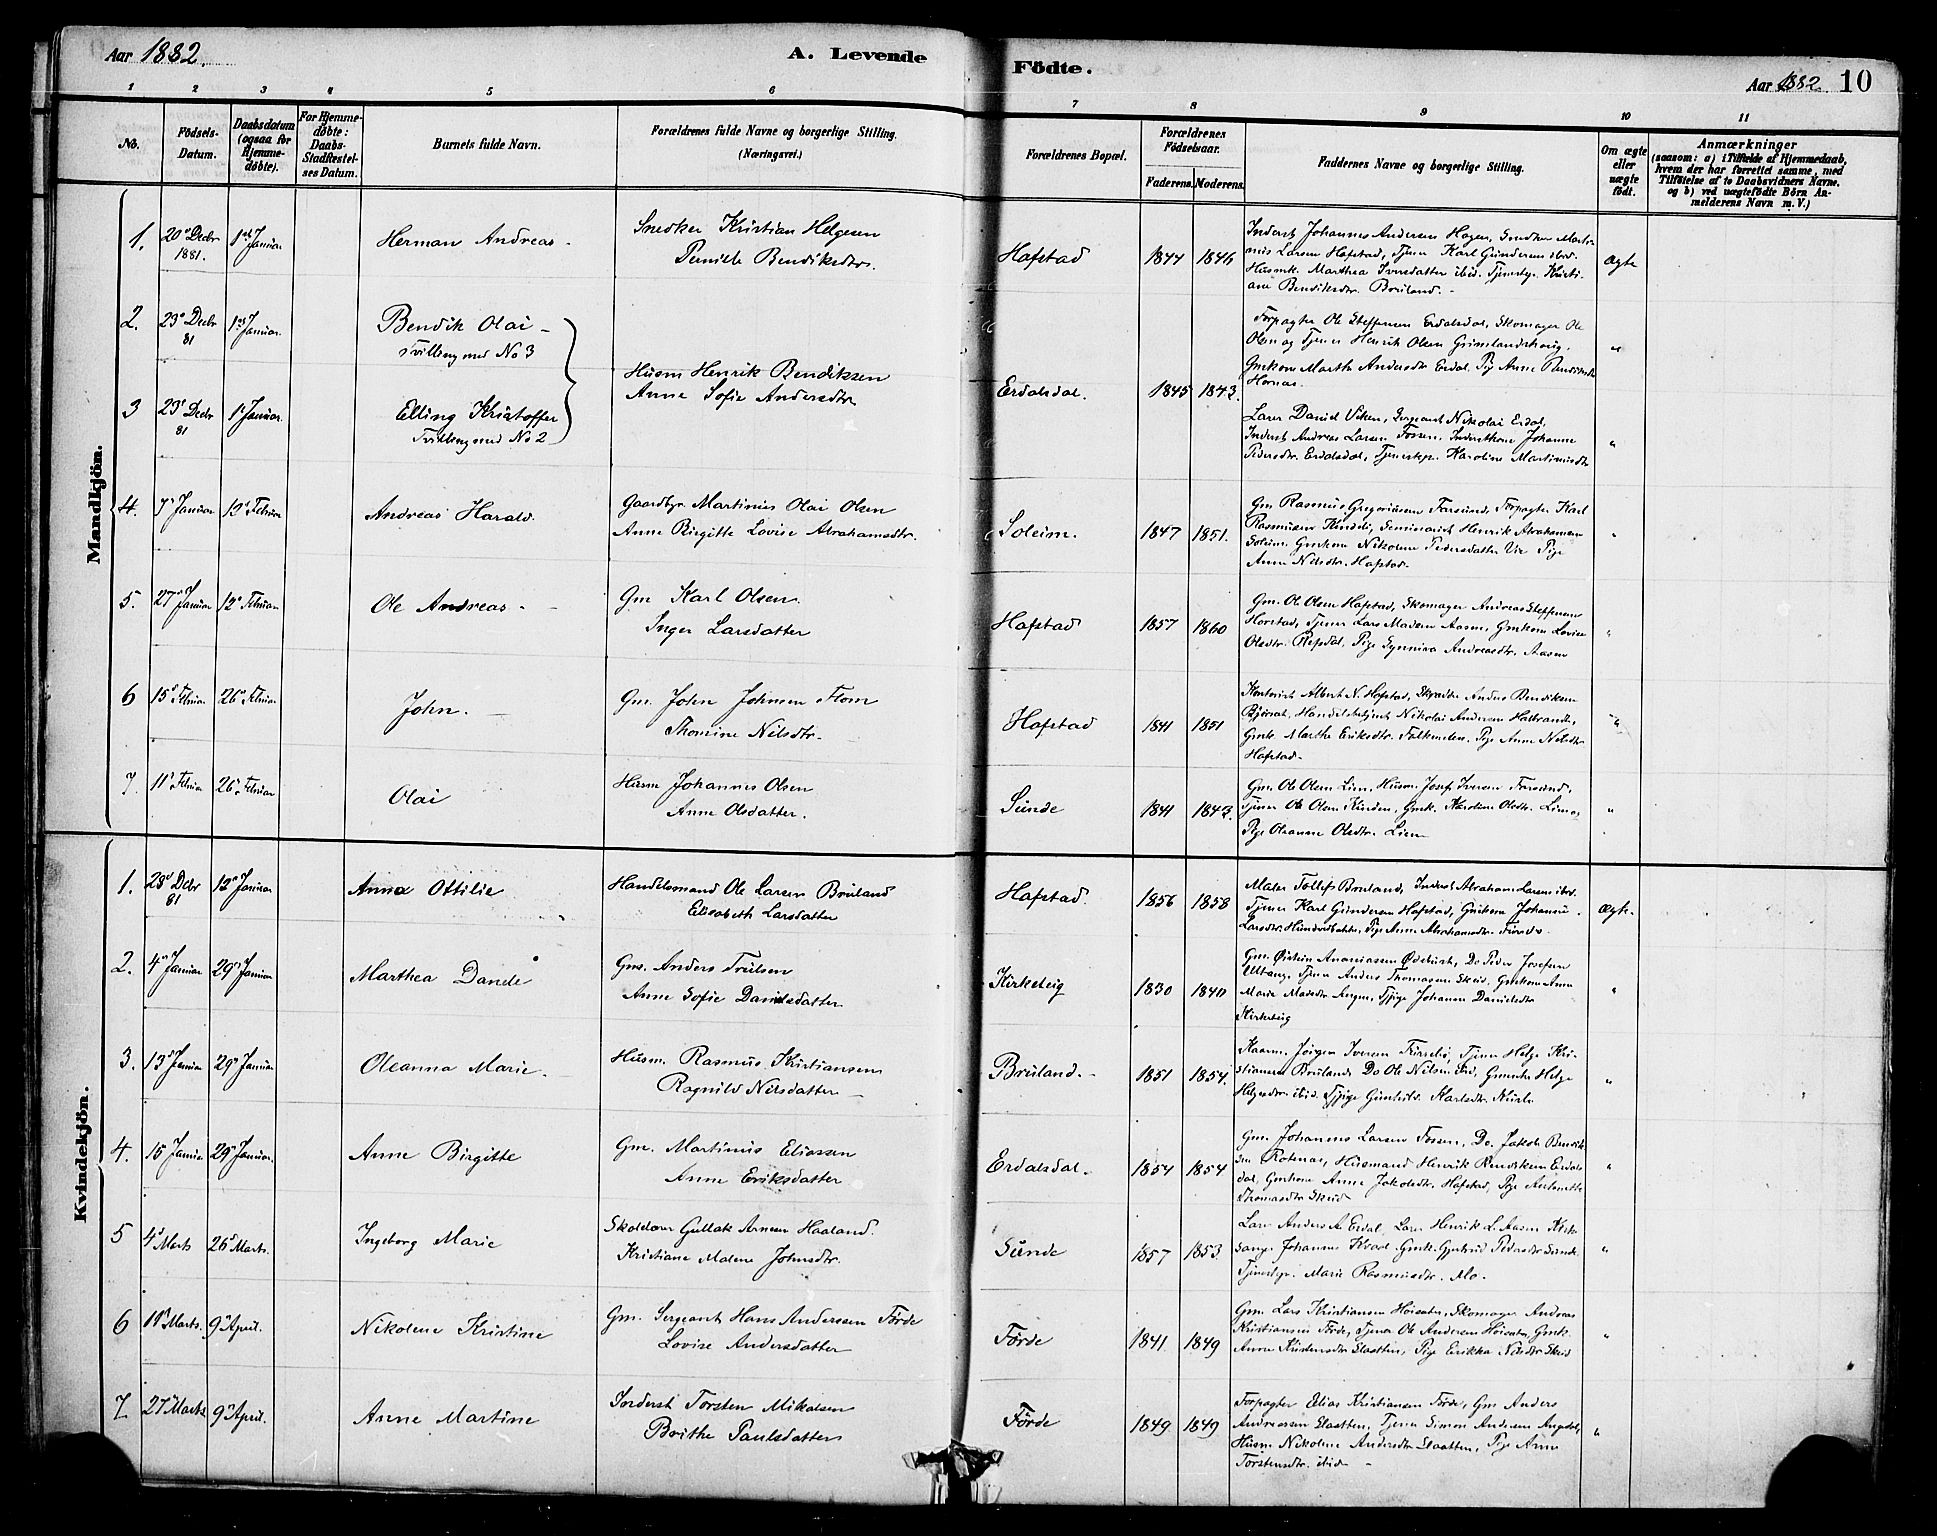 Aar 1882.
A. Levende
Födte.
Aar 1882.
10
1 2 3 4 5 6 7 8 9 10 11
No.
Födsels-
Datum.
Daabsdatum
(ogsaa for
Hjemme-
døbte).
For Hjemme-
døbte:
Daabs-
Stadfæstel-
ses Datum.
Barnets fulde Navn.
Forældrenes fulde Navne og borgerlige Stilling.
(Næringsvei.)
Forældrenes Bopæl.
Forældrenes
Födselsaar.
Faderens. Moderens.
Faddernes Navne og borgerlige Stilling.
Om ægte
eller
uægte
født.
Anmærkninger
(saasom: a) i Tilfælde af Hjemmedaab,
hvem der har forrettet samme, med
Tilføielse af to Daabsvidners Navne.
og b) ved uægtefødte Börn An-
melderens Navn m. V.)
Mandkjön.
1. 20 Decbr 1881. 1 Januar
Herman Andreas
Snedker Kristian Helgesen
Bendiksdtr.
Hafstad 1844 1846
Inderst Johannes Andersen Hagen, Snedker Marti-
nus Larsen Hafstad, Tjener Karl Gundersen ibid.
Husmk. Marthea Iversdatter ibid. Tjenstp. Kristi-
ane Bendiksdtr. Bruland.
Ægte
2. 23 Decbr 81 1 Januar
Bendik Olai
Tvilling med No 3
Husm Henrik Bendiksen
Anne Sofie Andersdtr
Erdalsdal. 1845 1843.
Forpagter Ole Steffensen Erdalsdal, Skomager Ole
Olsen og Tjener Henrik Olsen Grimlandshoug,
Gmkone Marthe Andersdtr Erdal, Pige Anne Bendiksdtr
Hornas.
"
3 23 Decbr 81 1 Januar.
Elling Kristoffer
Tvilling med No 2
Lærer Daniel Viken, Sergeant Nikolai Erdal,
Inderst Andreas Larsen Fossen, Inderstkone Johanne
Pedersdtr. Erdalsdal, Tjenestp. Karoline Martinusdtr
"
4. 7 Januar 12 Februar
Andreas Harald.
Gaardbr. Martinus Olai Olsen
Anne Birgitte Lovise Abrahamsdtr.
Soleim. 1847 1851.
Gm Rasmus Gregoriussen Farsund, Forpagter Karl
Rasmussen Seminarist Henrik Abrahamsen
Soleim. Gmkone Nikoline Pedersdatter Vie Pige
Anne Nilsdtr. Hafstad.
"
5. 27 Januar 12 Februar
Ole Andreas
Gm Karl Olsen
Inger Larsdatter
Hafstad 1857 1860
Gm. Ole Olsen Hafstad, Skomager Andreas Steffensen
Horstad, Tjener Lars Madsen Aasen, Gmkone Lovise
Olsdtr. Refsdal, Pige Synniva Andreasdtr. Aasen
"
6 15 Februar 26 Februar
John.
Gm. John Johnsen Flom
Thomine Nilsdtr.
Hafstad 1841 1851
Kontorist Albert N. Hafstad, Anders Bendiksen
Handelsbetjent Nikolai Andersen Halbrendt,
Gmk. Marthe Eriksdtr. Pige Anne Nilsdtr.
Hafstad.
"
7. 11 Februar 26 Februar
Olai
Husm Johannes Olsen
Anne Olsdatter.
Sunde 1841 1843.
Gm. Ole Olsen Lien, Husm Josef Iversen Farsund,
Tjener Ole Olsen Gmk. Karoline Olsdtr.
Pige Oleanne Olsdtr. Lien
"
Kvindekjön.
1. 28 Decbr 81 12 Januar
Anna Ottilie
Handelsmand Ole Larsen Bruland
Elisabeth Larsdatter
Hafstad. 1856 1858
Maler Tollef Bruland, Inderst Abraham Larsen ibid.
Tjener Karl Gundersen Hafstad, Gmkone Johanne
Larsdtr. Pige Anne Abrahamsdtr.
Ægte.
2. 4 Januar 29 Januar
Marthea Dande
Gm. Anders Trulsen
Anne Sofie Danielsdatter
Kirketeig 1830 1840
Gm. Øistein Ananiassen Do Peder Josefsen
Tjener Anders Thomassen Skei, Gmkone Anne
Marie Madsdtr Angen, Tjpige Johanne Danielsdtr
Kirketeig
"
3. 13 Januar 29 Januar
Oleanna Marie.
Husm. Rasmus Kristiansen
Ragnild Nilsdatter
Bruland. 1851 1854.
Jørgen Iversen Tjener Helge Kri-
stiansen Bruland Do Ole Nilsen Gmenke Helge
Helgesdtr ibid. Tjpige Gunhild Karlsdtr.
"
4. 15 Januar 29 Januar.
Anne Birgitte
Gm. Martinus Eliassen
Anne Eriksdatter
Erdalsdal. 1854 1854
Gm. Johannes Larsen Fossen, Do. Jakob Bendik-
sen Rotenes, Husmand Henrik Bendiksen Erdals-
dal, Gmkone Anne Jakobsdtr. Hafstad, Pige
Thomasdtr Skeid
"
5 4 Marts 26 Marts.
Ingeborg Marie
Skolelærer Gullak Arnesen Haaland.
Kristiane Malene Johnsdtr.
Sunde 1857 1853.
Lærer Anders A Erdal, Lærer Henrik L. Aasen Kirke-
sanger Johannes Kvaal Gmk. Gjertrud Pedersdtr Sunde
Tjenestp. Marie Rasmusdtr. Mo.
"
6 10 Marts. 9 April.
Nikolene Kristine
Gm. Sergeant Hans Anderssen Førde
Lovise Andersdatter
Førde 1841 1849
Gm. Lars Kristiansen Skomager Andreas
Kristiansen Førde, Tjener Ole Andersen Gmk.
Anne Slaatten, Pige Erikka Nilsdtr Skei
"
7 27 Marts 9 April.
Anne Martine
Inderst Torsten Mikalsen
Brithe Paulsdatter
Førde 1849 1849
Forpagter Elias Kristiansen Førde, Gm Anders
Andreassen Slaatten, Tjener Simon Andersen Angedal,
Husm Nikolene Andersdtr Slaatten, Pige Anne
Torstensdtr. ibid
"